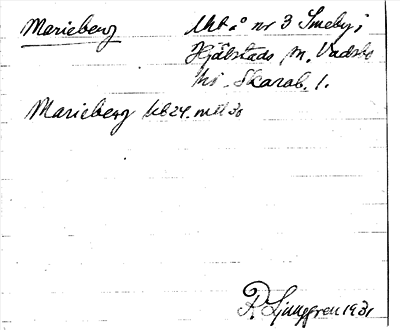 Marieberg
Utk å nr 3 Smeby i
Hjälstads sn. Vadsbo
hd. Skarab. l.
Marieberg kb 24.
R. Ljunggren 1931